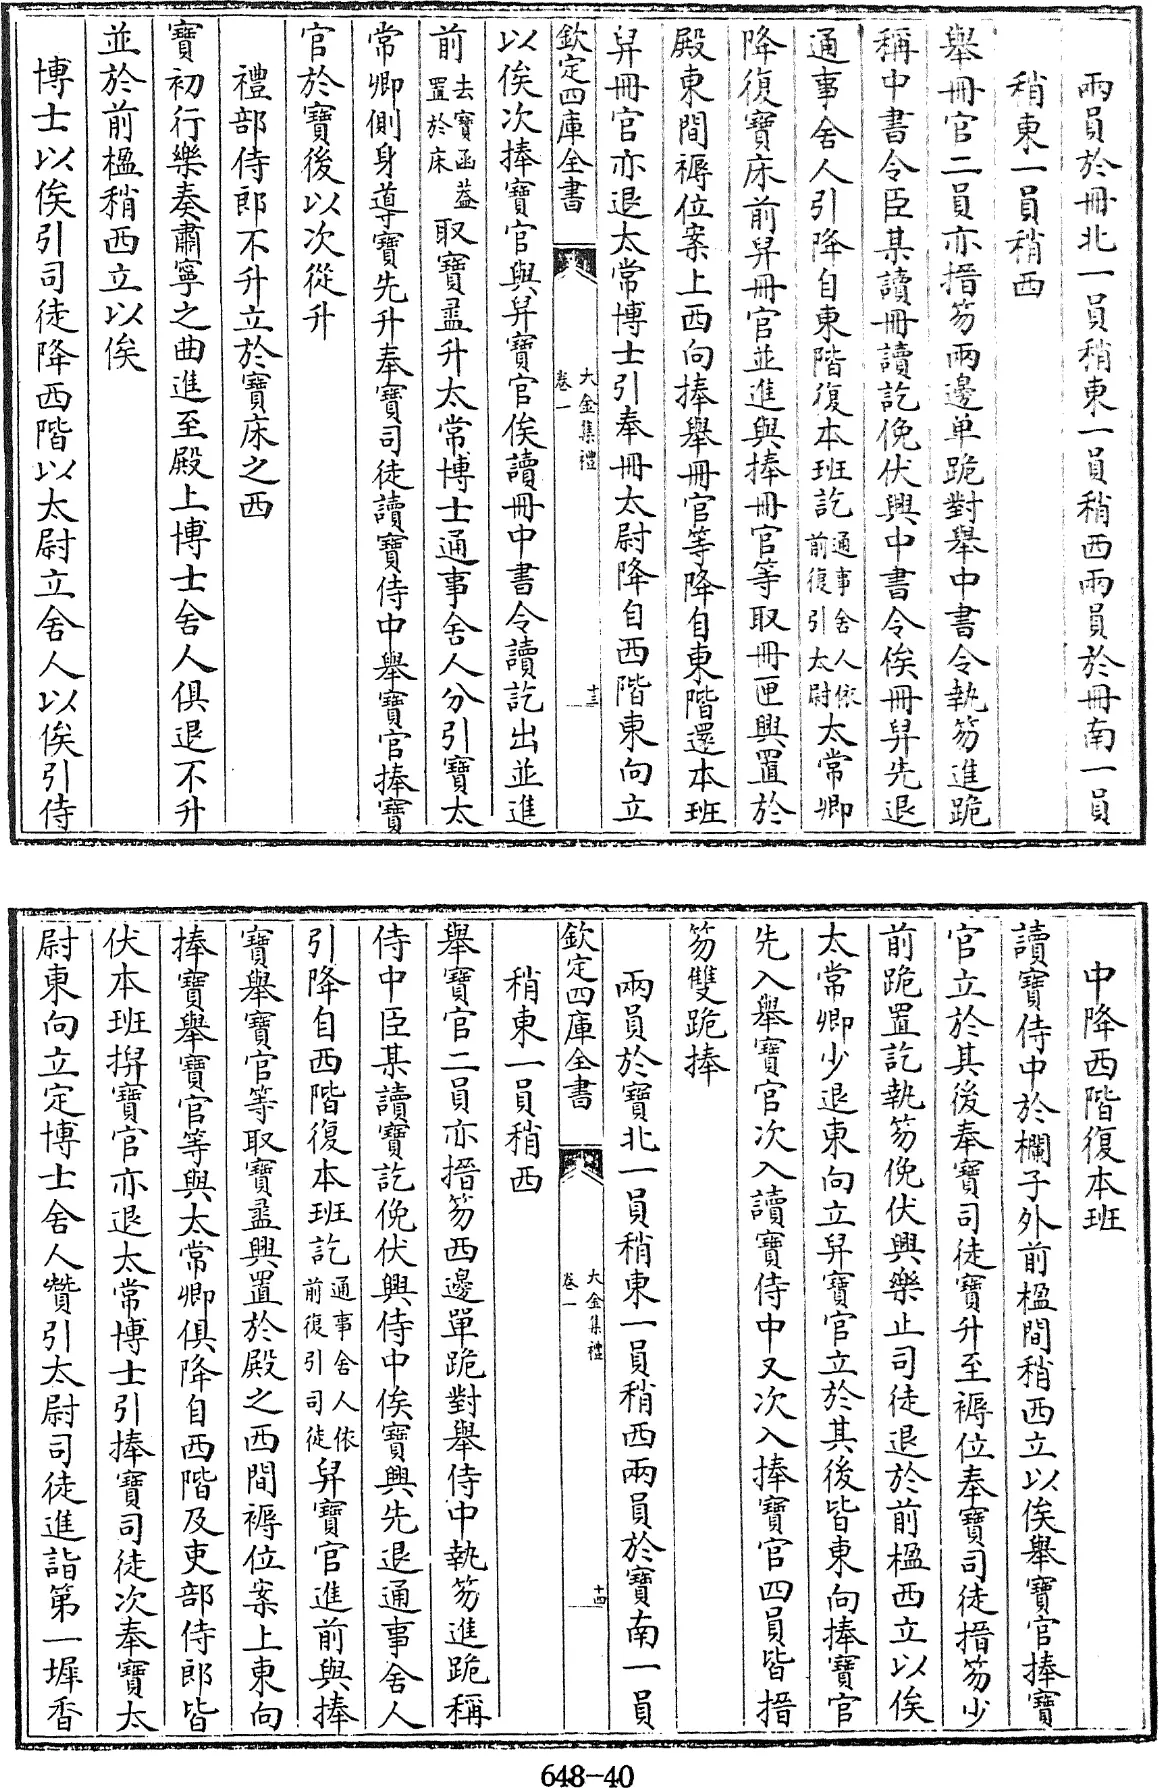 兩員於冊北一員稍東一員稍西兩員於冊南一員
稍東一員稍西
舉冊官二員亦搢笏兩邊単跪對舉中書令執笏進跪
稱中書令臣某讀冊讀訖俛伏興中書令俟冊舁先退
通事舍人引降自東階復本班訖通事舍人依前復引太尉太常卿
降復寶床前舁冊官並進與捧冊官等取冊匣興置於
殿東間褥位案上西向捧舉冊官等降自東階還本班
舁冊官亦退太常博士引奉冊太尉降自西階東向立
欽定四庫全書
大金集禮
卷一
十三
以俟次捧寶官與舁寶官俟讀冊中書令讀訖出並進
前去寶函葢置於床取寶盝升太常博士通事舍人分引寶太
常卿側身導寶先升奉寶司徒讀寶侍中舉寶官捧寶
官於寶後以次從升
禮部侍郎不升立於寶床之西
寶初行樂奏肅寧之曲進至殿上博士舍人俱退不升
並於前楹稍西立以俟
博士以俟引司徒降西階以太尉立舍人以俟引侍
中降西階復本班
讀寶侍中於欄子外前楹間稍西立以俟舉寶官捧寶
官立於其後奉寶司徒寶升至褥位奉寶司徒搢笏少
前跪置訖執笏俛伏興樂止司徒退於前楹西立以俟
太常卿少退東向立舁寶官立於其後皆東向捧寶官
先入舉寶官次入讀寶侍中又次入捧寶官四員皆搢
笏雙跪捧
兩員於寶北一員稍東一員稍西兩員於寶南一員
欽定四庫全書
大金集禮
卷一
十四
稍東一員稍西
舉寶官二員亦搢笏西邊單跪對舉侍中執笏進跪稱
侍中臣某讀寶訖俛伏興侍中俟寶興先退通事舍人
引降自西階復本班訖通事舍人依前復引司徒舁寶官進前與捧
寶舉寶官等取寶盝興置於殿之西間褥位案上東向
捧寶舉寶官等與太常卿俱降自西階及吏部侍郎皆
伏本班捹寶官亦退太常博士引捧寶司徒次奉寶太
尉東向立定博士舍人贊引太尉司徒進詣第一墀香
648-40